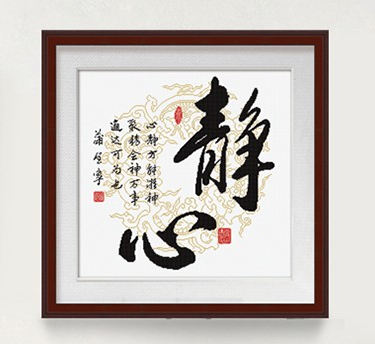 静
心
心静方能凝神
聚精会神万事
通达可为也